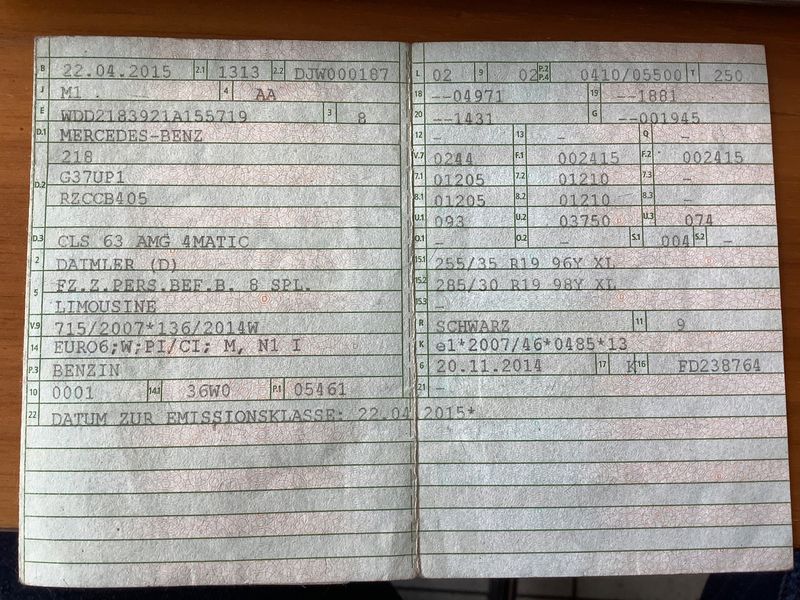 B 22.04.2015 2.1 1313 2.2 DJW000187
J M1 . 4 AA
E WDD2183921A155719 3 8
D.1 MERCEDES-BENZ
218
D.2 G37UP1
RZCCB405
D.3 CLS 63 AMG 4MATIC
2 DAIMLER (D)
5 FZ.Z.PERS.BEF.B. 8 SPL.
LIMOUSINE
V.9 715/2007*136/2014W
14 EURO6;W;PI/CI; M, N1 I
P.3 BENZIN
10 0001 14.1 36W0 P.1 05461
22 DATUM ZUR EMISSIONSKLASSE: 22.04.2015*
L 02 9 02 P.2 P.4 0410/05500 T 250
18 --04971 19 --1881
20 --1431 G --001945
12 - 13 - Q -
V.7 0244 F.1 002415 F.2 002415
7.1 01205 7.2 01210 7.3 -
8.1 01205 8.2 01210 8.3 -
U.1 093 U.2 03750 U.3 074
O.1 - O.2 - S.1 004 S.2 -
15.1 255/35 R19 96Y XL
15.2 285/30 R19 98Y XL
15.3 -
R SCHWARZ 11 9
K e1*2007/46*0485*13
6 20.11.2014 17 K 16 FD238764
21 -